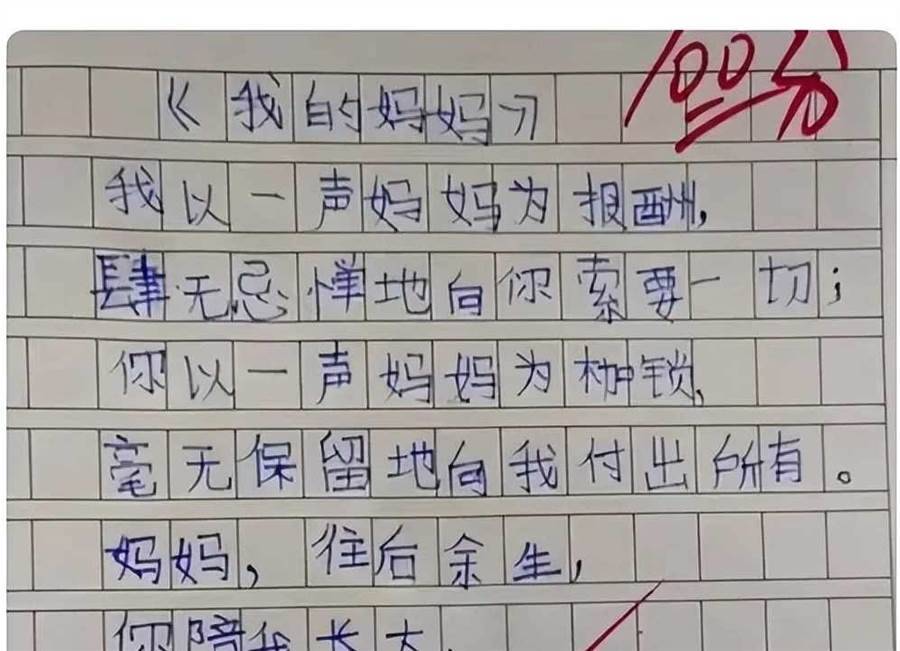 100分
《我的妈妈》
我以一声妈妈为报酬,
肆无忌惮地向你索要一切;
你以一声妈妈为枷锁,
毫无保留地向我付出所有。
妈妈,往后余生,
你陪我长大,